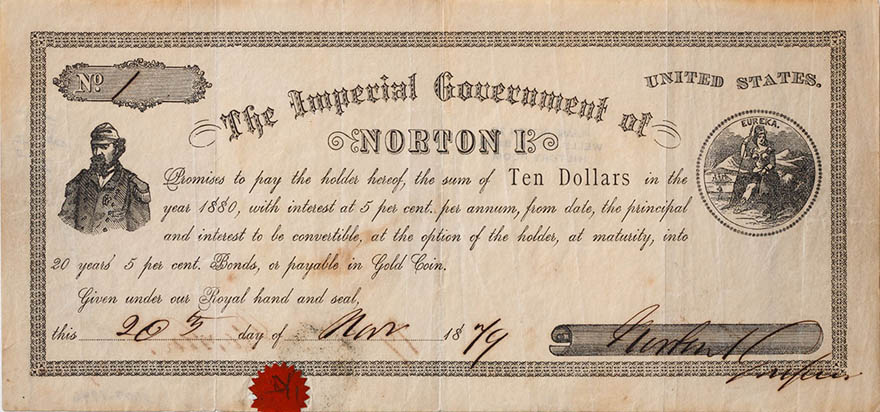 No. 1
UNITED STATES.
The Imperial Government of
NORTON I.
EUREKA.
Promises to pay the holder hereof, the sum of Ten Dollars in the
year 1880, with interest at 5 per cent. per annum, from date, the principal
and interest to be convertible, at the option of the holder, at maturity, into
20 years' 5 per cent. Bonds, or payable in Gold Coin.
Given under our Royal hand and seal,
this 20th day of Nov 1879
Norton I
Emperor